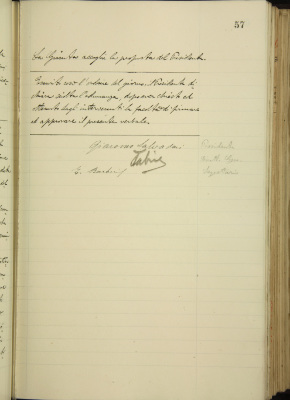 57
La Giunta accoglie la proposta del Presidente.
Esaurito così l'ordine del giorno, il Presidente di-
chiara sciolta l'adunanza, dopo aver chiesto ed
ottenuto dagli intervenuti la facoltà di firmare
ed approvare il presente verbale.
Giacomo Salvadori
Presidente